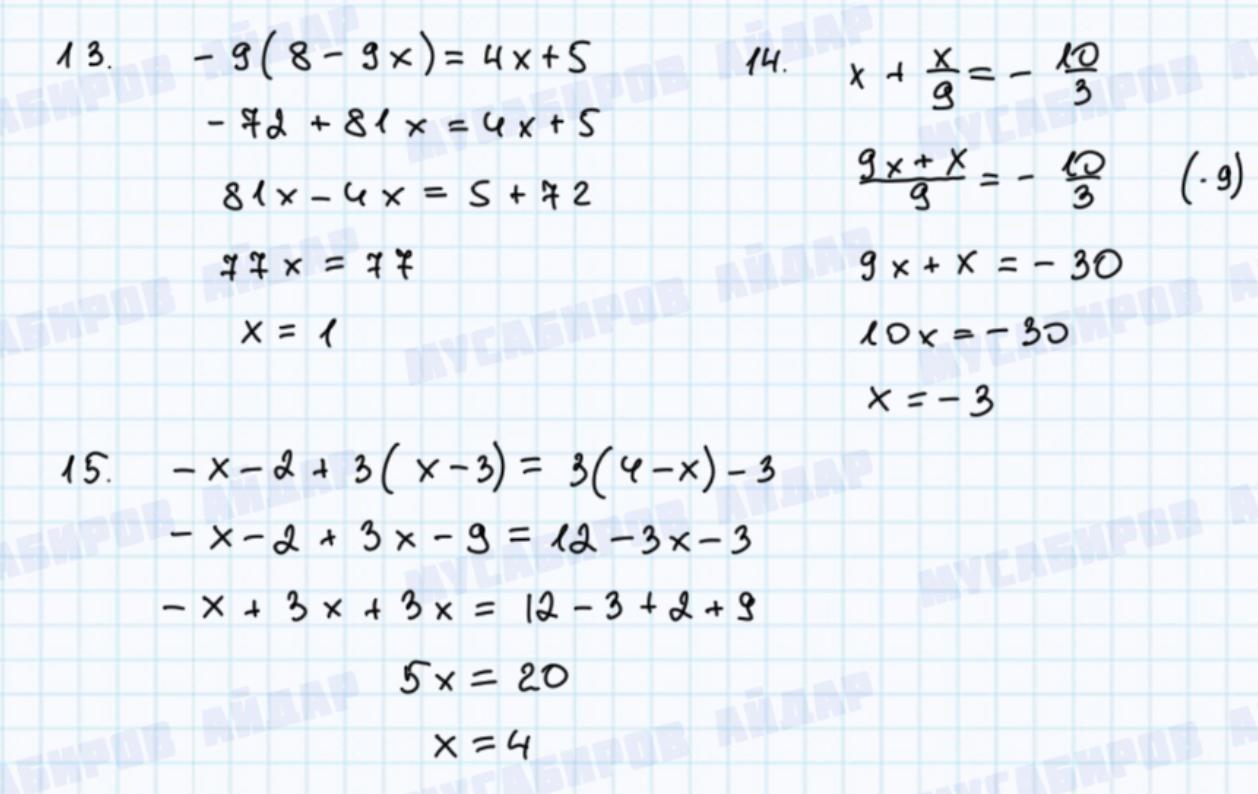 13. -9(8-9x)=4x+5
-72+81x=4x+5
81x-4x=5+72
77x=77
x=1
14. x+x/9=-10/3
(9x+x)/9=-10/3 (·9)
9x+x=-30
10x=-30
x=-3
15. -x-2+3(x-3)=3(4-x)-3
-x-2+3x-9=12-3x-3
-x+3x+3x=12-3+2+9
5x=20
x=4
МУСАБИРОВ АЙДАР